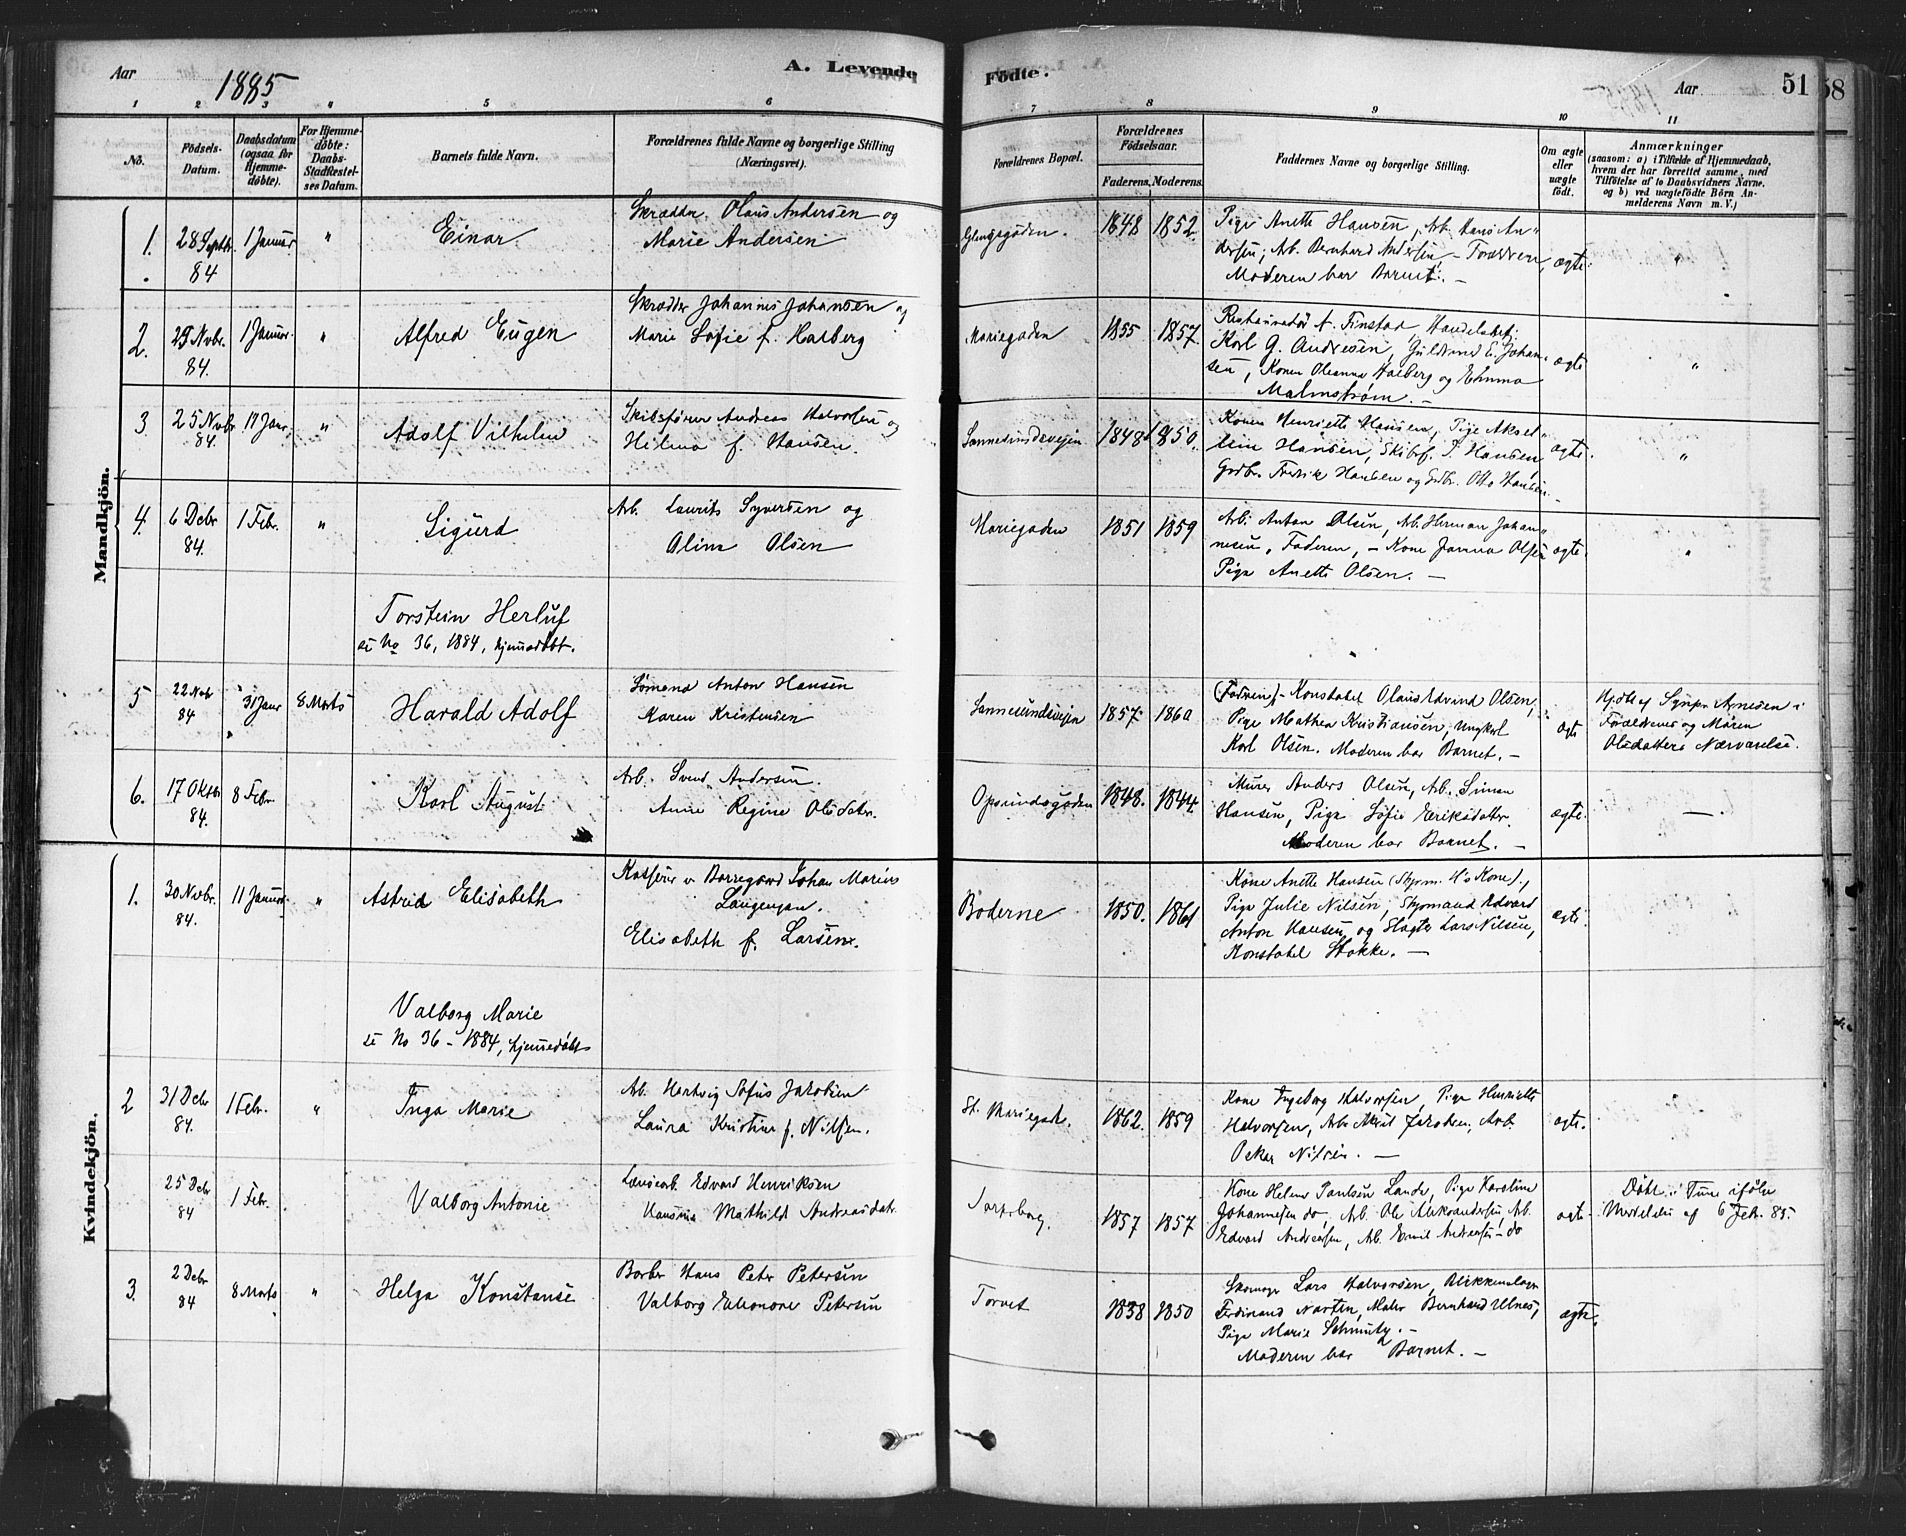 Aar 1885 A. Levende Fødte. Aar 51 58
1 2 3 4 5 6 7 8 9 10 11
No.
Fødsels-Datum.
Daabsdatum (ogsaa for Hjemmedøbte).
For Hjemmedøbte: Daabs-Stadfæstelses Datum.
Barnets fulde Navn.
Forældrenes fulde Navne og borgerlige Stilling (Næringsvei).
Forældrenes Bopæl.
Forældrenes Fødselsaar.
Faderens. Moderens.
Faddernes Navne og borgerlige Stilling.
Om ægte eller uægte født.
Anmærkninger
(saasom: a) i Tilfælde af Hjemmedaab,
hvem der har forrettet samme, med
Tilføielse af to Daabsvidners Navne,
og b) ved uægtefødte Børn Anmelderens Navn m. V.)
Mandkjön.
1. 28 Septbr. 84 1 Januar " Einar
Skrædder Olaus Andersen og
Marie Andersen
1848 1852
Pige Anette Hansen, Arb. Hans An-
dersen, Arb. Bernhard Andersen, – Forældren,
Moderen bar Barnet. –
ægte. "
2. Novbr. 84. 1 Januar " Alfred Eugen
Skrædder Johannes Johansen og
Marie Sofie f. Halberg
Mariegaden 1855 1857
Restauratør A. Finstad, Handelsbetj.
Karl G. Andresen, Guldsmed E. Johan-
sen, Konen Oleanna Halberg og Emma
Malmstrøm. –
ægte "
3. 25 Novbr 84. Janr " Adolf Vilhelm
Skibsfører Andreas Halvorsen og
Hilma f. Hansen.
Sannesundsveien 1848 1850.
Konen Henriette Hansen, Pige
Hansen, Skibsf. Hansen
Grdbr. Fredrik Hansen og Grdbr. Otto Hansen –
ægte. "
4. 6 Debr 84. 1 Febr. " Sigurd
Arb. Laurits Syversen og
Oline Olsen
Mariegaden 1851 1859
Arb. Anton Olsen, Arb. Herman Johan-
nesen, Faderen, – Kone Janna Olsen
Pige Anette Olsen. –
ægte. "
Torstein Herluf
se No 36, 1884, hjemmedøbt.
5 22 Novbr 84 31 Janr 8 Marts Harald Adolf
Sømand Anton Hansen
Karen Kristensen
Sannesundsveien 1857 1860
(Faderen) – Konstabel Olaus Edvind Olsen,
Pige Mathea Kristiansen, Ungkarl
Karl Olsen. Moderen bar Barnet. –
ægte
Hjdbt af Arnesen i
Forældrenes og Maren
Olsdatters Nærværelse.
6. 17 Oktbr 84. 8 Febr Karl August
Arb. Svend Andersen.
Anne Regine Olsdater.
Opsundsgaden 1848. 1844.
Murer Anders Olsen, Arb. Simen
Hansen, Pige Sofie Eriksdatter.
Moderen bar Barnet. –
ægte. –
Kvindekjön.
1. 30 Novbr. 84. 11 Januar " Astrid Elisabeth
Kasserer v Borregaard Johan Marius
Elisabeth f. Larsen.
Boderne 1850. 1861
Kone Anette Hansen (Styrm. H's Kone).,
Pige Julie Nilsen, Styrmand Edvard
Anton Hansen og Slagter Lars Nilsen,
Konstabel Stokke. –
ægte.
Valborg Marie
se No 36 – 1884, hjemmedøbt
2 31 Debr 84. 1 Febr. " Inga Marie
Arb. Hartvig Sofus Jakobsen
Laura Kristine f. Nilsen.
St. Mariegade. 1862. 1859
Kone Ingeborg Halvorsen, Pige Henriette
Halvorsen, Arb. Jakobsen, Arb.
Oskar Nilsen. –
ægte.
25 Debr 84 1 Febr. Valborg Antonie
Edvard Henriksen
Hansine Mathilde Andreasdatr.
Sarpsborg 1857 1857
Kone Helene Paulsen Lande, Pige Karoline
Johannesen do, Arb. Ole Aleksandersen, Arb.
Edvard Andreasen, Arb. Emil Andersen – do
ægte.
Døbt i Tune ifølge
Meddelelse af 6 Feb. 85.
3. 2 Debr 84 8 Marts " Helga Konstanse
Barber Hans Peter Petersen
Valborg Eleonore Petersen
Torvet 1838 1850
Skomager Lars Halvorsen, Blikkenslager
Ferdinand Maler Bernhard Ulnes,
Pige Marie –
Moderen bar Barnet. –
ægte.